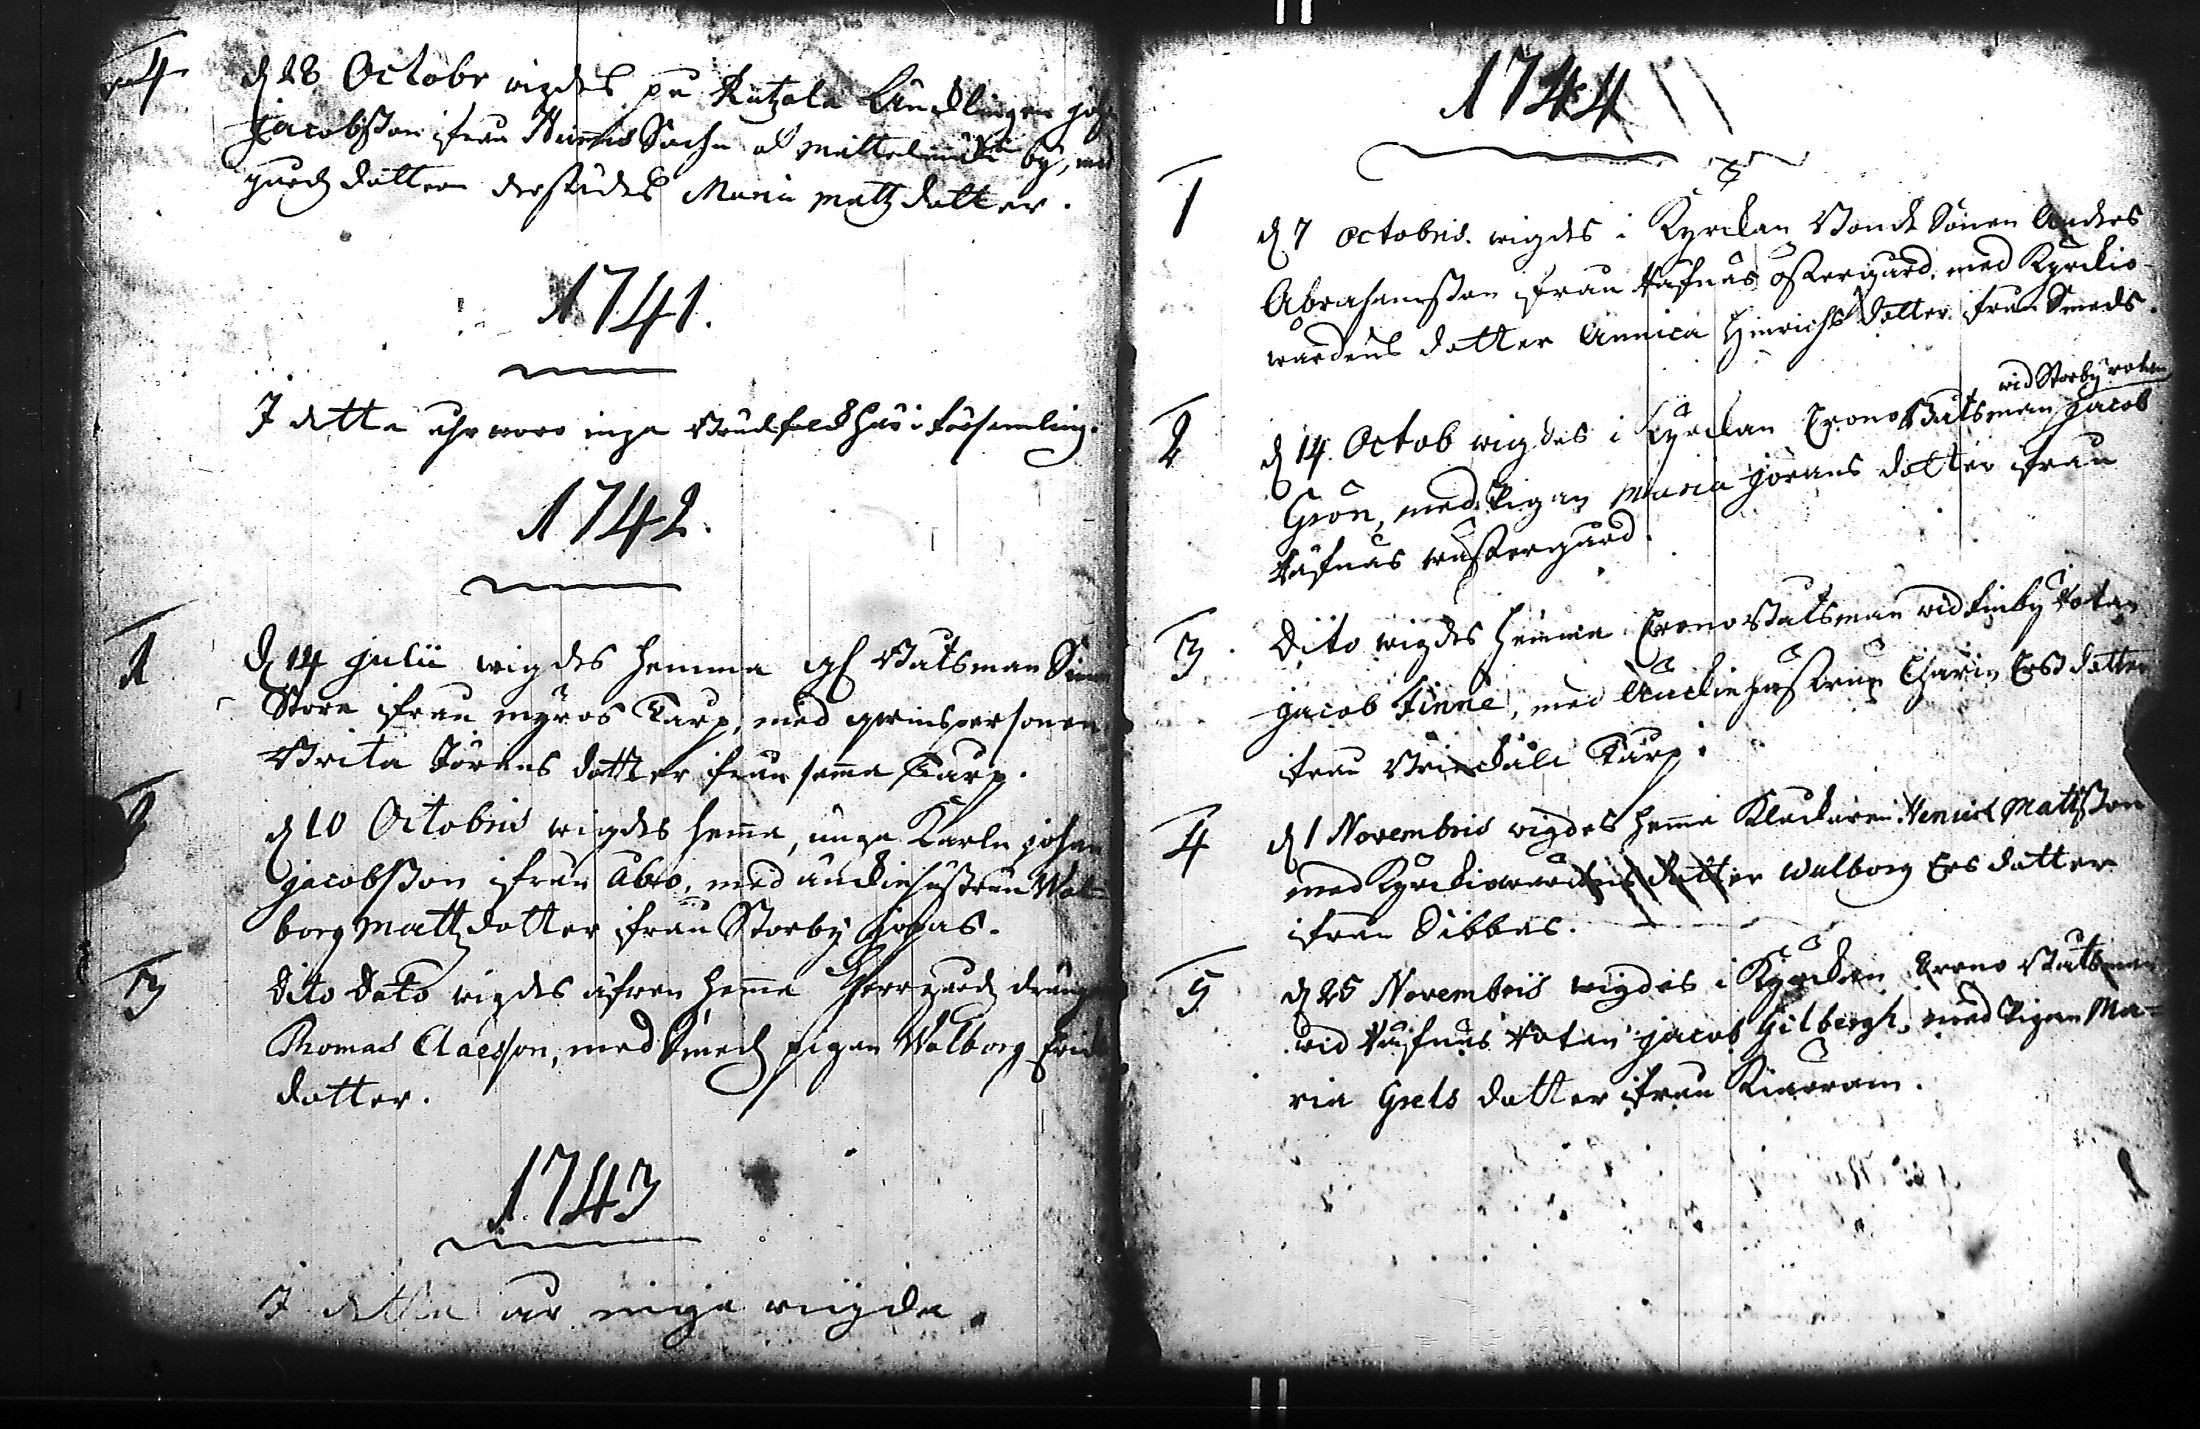 4 d 28 Octobr wigdes på Kutzala Encklingen joh
Jacobsson ifrån Nummis Sochn och mittel by, med
gårds dottren dersädes Maria Matz dotter.
1741.
I detta åhr woro inga Brudfolck här i församling.
1742.
1 d 14 julii wigdes hemma gl Båtsman Sim
Store ifrån myros Torp, med qwinspersonen
Brita Jörens dotter ifrån samma Torp.
2 d 10 Octobris wigdes hemma, unga Karlen johan
jacobsson ifrån Åbo, med änckiehustrun Wal-
borg Mattz dotter ifrån Storby
3 Dito Dato wigdes äfwen hemma Herregårds dräng
Thomas Claesson, med Smeds pigan Walborg Erics
dotter.
1743
I detta år inga wigda.
1744
1 d 7 octobris. wigdes i Kyrckan Bonde Sonen Anders
Abrahamsson ifrån Näsnäs östergård, med Kyrckio-
wärdens dotter Annica Hinrichs dotter ifrån Smeds.
wid Storby rotan
2 d 14. Octob wigdes i Kyrckan Crono Båtsman jacob
Grön, med Pigan Maria jörans dotter ifrån
Näsnäs wästergård.
3 Dito wigdes hemma Crono Båtsman wid Finby Rotan
jacob Finne, med Änckiehustrun Charin Ers dotter
ifrån Torp.
4 d 1 Novembris wigdes hemma Klockaren Henrick Mattsson
med Kyrckiowärdens dotter Walborg Ers dotter
ifrån Sibbas.
5 d 25 Novembris wigdes i Kyrckan Crono Båtsman
wid Näsnäs Rotan jacob Gilbergh, med Pigan Ma-
ria Grels dotter ifrån